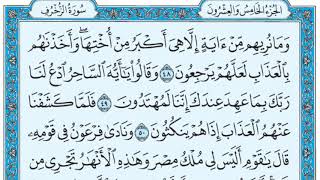 الجزء الخامس والعشرون
سورة الزخرف
وَمَا نُرِيهِم مِّنْ ءَايَةٍ إِلَّا هِيَ أَكْبَرُ مِنْ أُخْتِهَا ۖ وَأَخَذْنَٰهُم
بِٱلْعَذَابِ لَعَلَّهُمْ يَرْجِعُونَ ٤٨ وَقَالُوا۟ يَٰٓأَيُّهَ ٱلسَّاحِرُ ٱدْعُ لَنَا
رَبَّكَ بِمَا عَهِدَ عِندَكَ إِنَّنَا لَمُهْتَدُونَ ٤٩ فَلَمَّا كَشَفْنَا
عَنْهُمُ ٱلْعَذَابَ إِذَا هُمْ يَنكُثُونَ ٥٠ وَنَادَىٰ فِرْعَوْنُ فِى قَوْمِهِۦ
قَالَ يَٰقَوْمِ أَلَيْسَ لِى مُلْكُ مِصْرَ وَهَٰذِهِ ٱلْأَنْهَٰرُ تَجْرِى مِن